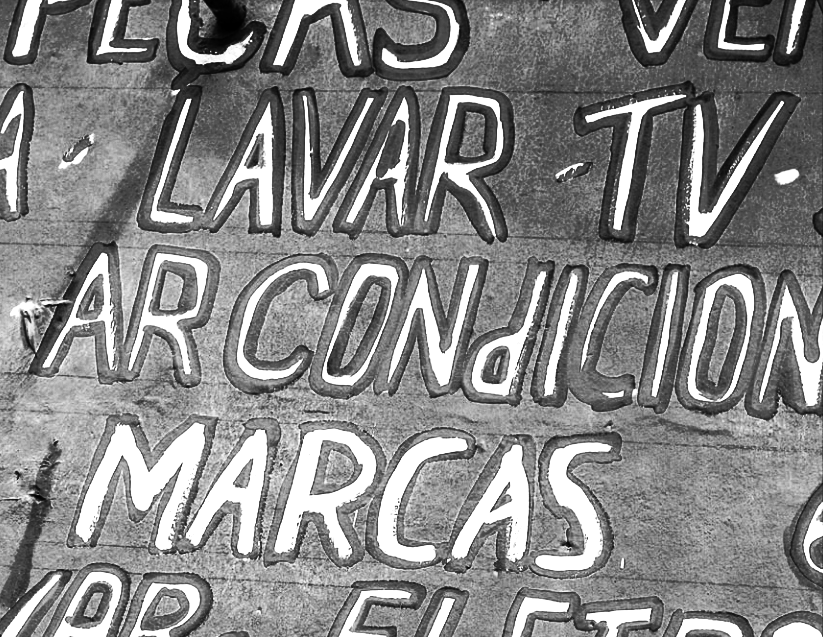 PEÇAS VEN
A · LAVAR · TV ·
AR CONdICION
MARCAS
VAR. ELETRO